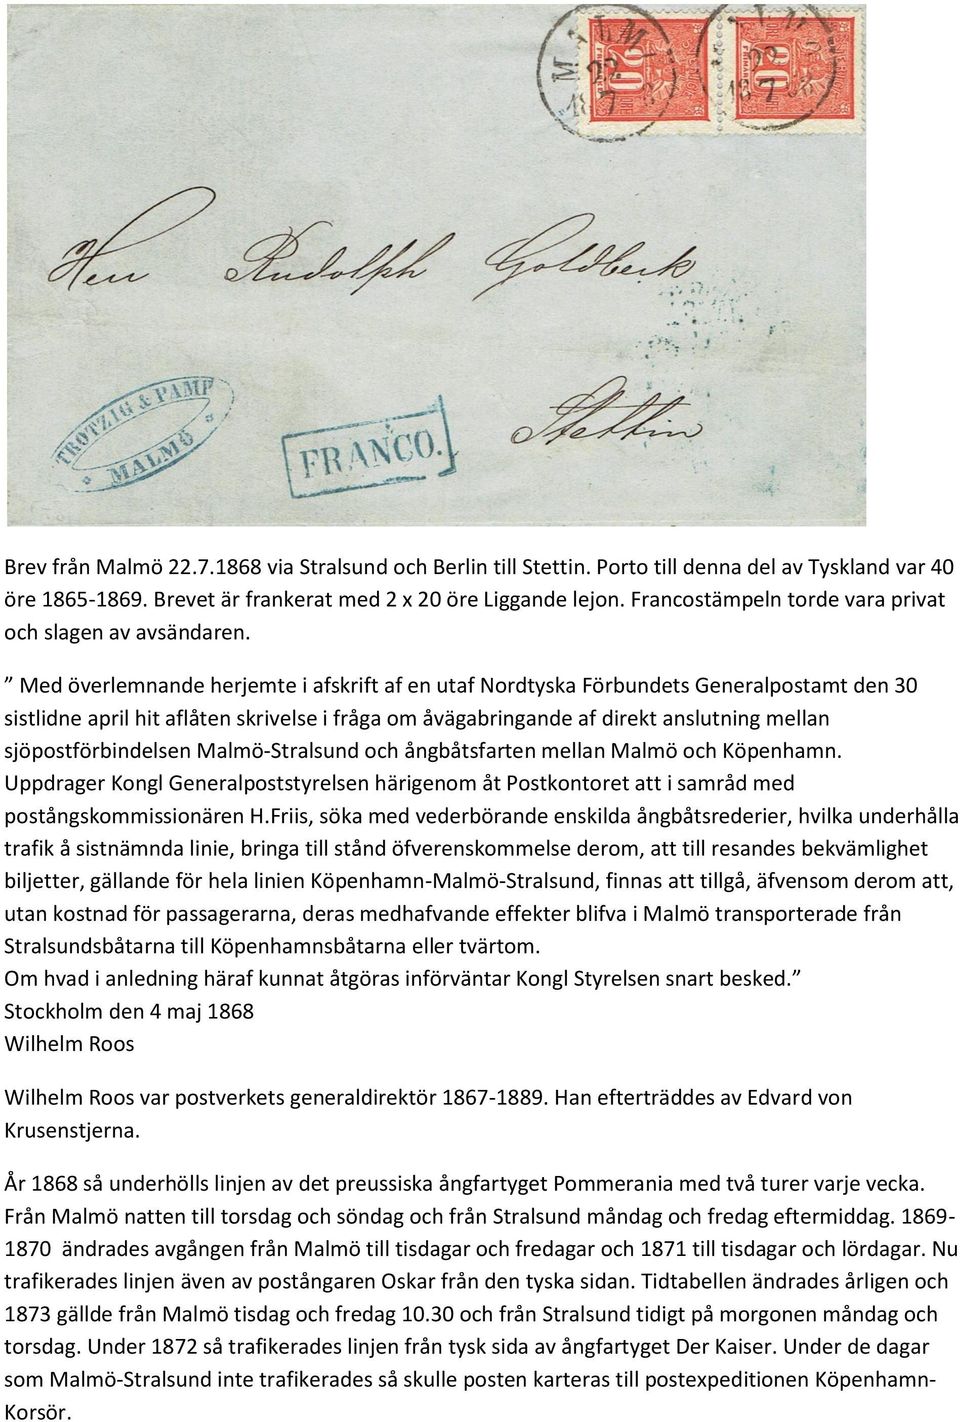 MALMÖ
22
18 7 68
20
ÖRE
FRIMÄRKE
22
18 7 68
20
Herr Rudolph Goldbeck
Stettin
TRØTZIG & PAMP
* MALMÖ *
FRANCO.
Brev från Malmö 22.7.1868 via Stralsund och Berlin till Stettin. Porto till denna del av Tyskland var 40
öre 1865-1869. Brevet är frankerat med 2 x 20 öre Liggande lejon. Francostämpeln torde vara privat
och slagen av avsändaren.
” Med överlemnande herjemte i afskrift af en utaf Nordtyska Förbundets Generalpostamt den 30
sistlidne april hit aflåten skrivelse i fråga om åvägabringande af direkt anslutning mellan
sjöpostförbindelsen Malmö-Stralsund och ångbåtsfarten mellan Malmö och Köpenhamn.
Uppdrager Kongl Generalpoststyrelsen härigenom åt Postkontoret att i samråd med
postångskommissionären H.Friis, söka med vederbörande enskilda ångbåtsrederier, hvilka underhålla
trafik å sistnämnda linie, bringa till stånd öfverenskommelse derom, att till resandes bekvämlighet
biljetter, gällande för hela linien Köpenhamn-Malmö-Stralsund, finnas att tillgå, äfvensom derom att,
utan kostnad för passagerarna, deras medhafvande effekter blifva i Malmö transporterade från
Stralsundsbåtarna till Köpenhamnsbåtarna eller tvärtom.
Om hvad i anledning häraf kunnat åtgöras införväntar Kongl Styrelsen snart besked.”
Stockholm den 4 maj 1868
Wilhelm Roos
Wilhelm Roos var postverkets generaldirektör 1867-1889. Han efterträddes av Edvard von
Krusenstjerna.
År 1868 så underhölls linjen av det preussiska ångfartyget Pommerania med två turer varje vecka.
Från Malmö natten till torsdag och söndag och från Stralsund måndag och fredag eftermiddag. 1869-
1870 ändrades avgången från Malmö till tisdagar och fredagar och 1871 till tisdagar och lördagar. Nu
trafikerades linjen även av postångaren Oskar från den tyska sidan. Tidtabellen ändrades årligen och
1873 gällde från Malmö tisdag och fredag 10.30 och från Stralsund tidigt på morgonen måndag och
torsdag. Under 1872 så trafikerades linjen från tysk sida av ångfartyget Der Kaiser. Under de dagar
som Malmö-Stralsund inte trafikerades så skulle posten karteras till postexpeditionen Köpenhamn-
Korsör.